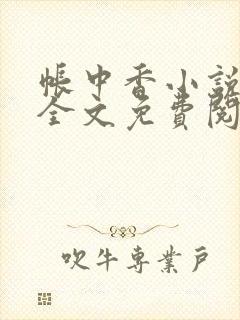 帳中香小說
全文免費閱
吹牛專業戶